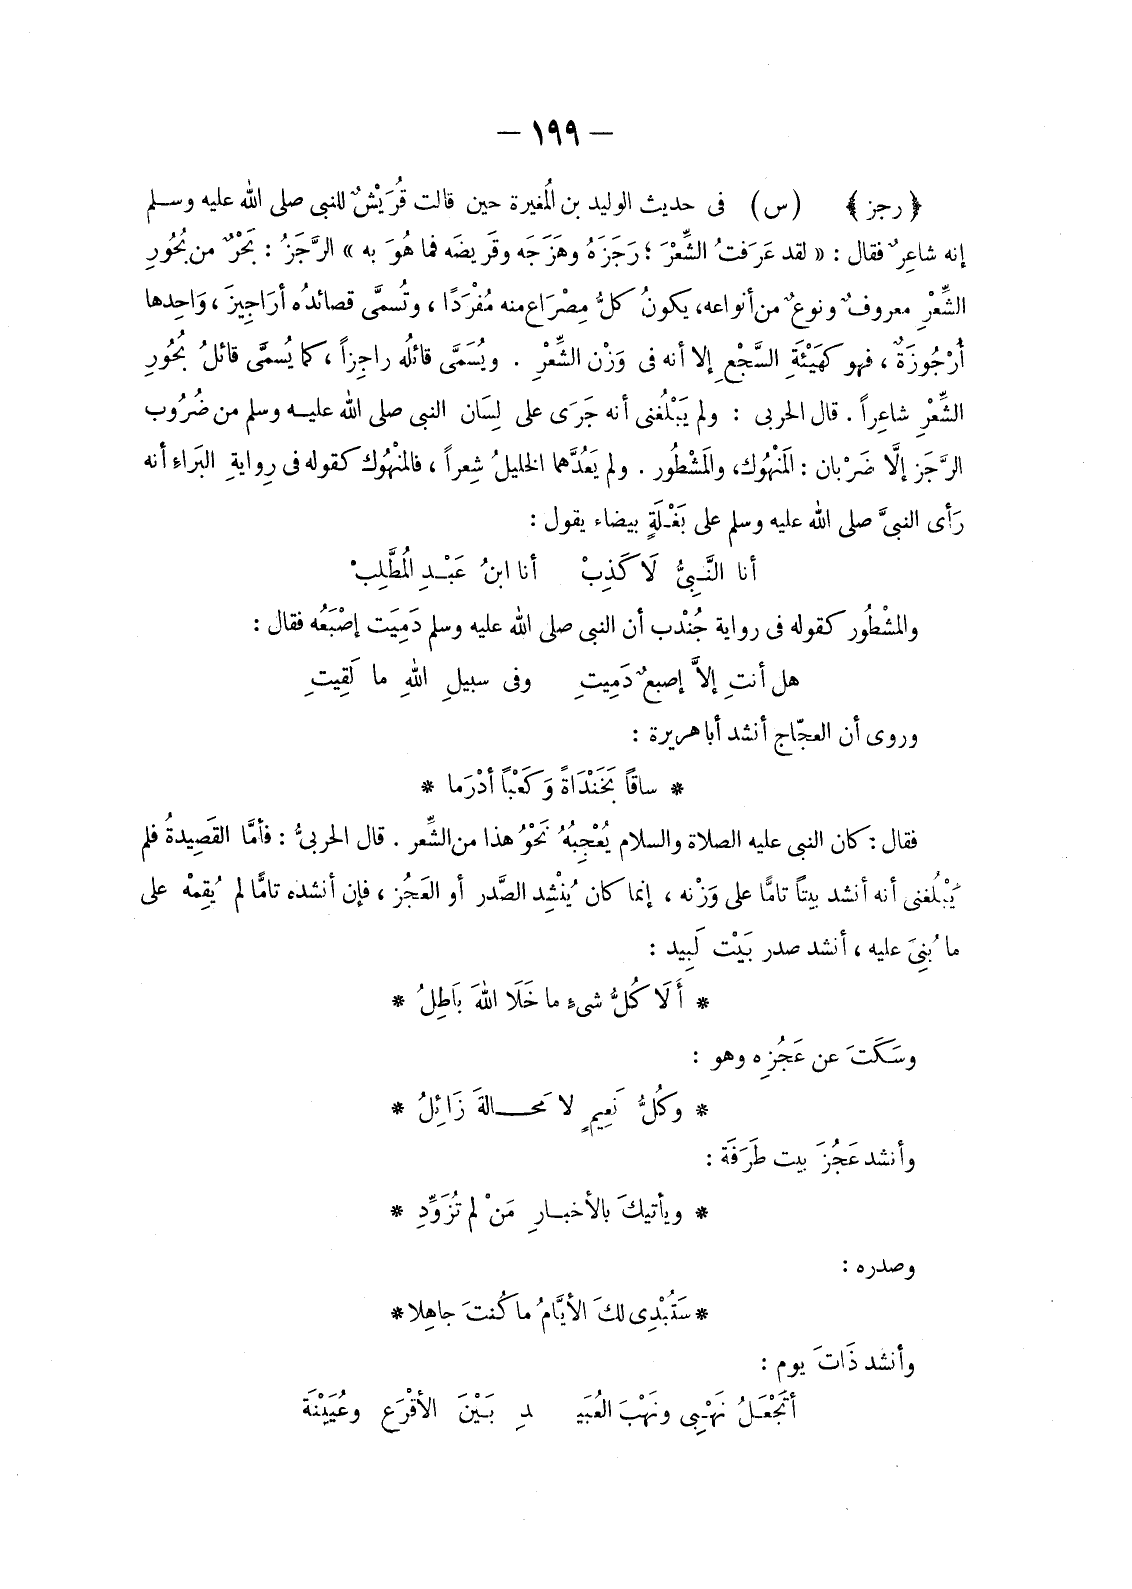 — ١٩٩ —
﴿ رجز ﴾ (س) فى حديث الوليد بن المُغيرة حين قالت قُرَيْشٌ للنبى صلى الله عليه وسلم
إنه شاعِرٌ فقال : « لقد عَرَفتُ الشِّعْرَ ؛ رَجَزَهُ وهَزَجَه وقَرِيضَه فما هُوَ به » الرَّجَزُ : بَحْرٌ من بُحُورِ
الشِّعْرِ معروفٌ ونوعٌ من أنواعه، يكونُ كلُّ مِصْرَاع منه مُفْرَدًا ، وتُسمَّى قصائدُه أرَاجِيزَ ، وَاحِدها
أُرْجُوزَةٌ ، فهو كهَيْئَةِ السَّجْعِ إلا أنه فى وَزْن الشِّعْرِ . ويُسَمَّى قائلُه راجِزاً ، كما يُسمَّى قائلُ بُحُورِ
الشِّعْرِ شاعِراً . قال الحربى : ولم يَبْلُغنى أنه جَرَى على لِسَان النبى صلى الله عليه وسلم من ضُرُوب
الرَّجَز إلَّا ضَرْبان : المَنْهُوك، والمَشْطُور . ولم يَعُدَّهما الخليلُ شِعراً ، فالمَنْهُوك كقوله فى رِوايةِ البَراءِ أنه
رَأى النبىَّ صلى الله عليه وسلم على بَغْلَةٍ بيضاء يقول :
أنا النَّبِىُّ لَا كَذِبْ أنا ابنُ عَبْدِ المُطَّلِبْ
والمشْطُور كقوله فى رواية جُنْدَب أن النبى صلى الله عليه وسلم دَمِيَت إصْبَعُه فقال :
هل أنتِ إلاَّ إصبعٌ دَمِيتِ وفى سبيلِ اللهِ ما لَقِيتِ
وروى أن العجّاج أنشد أبا هريرة :
* ساقاً بَخَنْدَاةً وَكَعْبًا أدْرَما *
فقال : كان النبى عليه الصلاة والسلام يُعْجِبُهُ نَحْوُ هذا من الشِّعر . قال الحربىُّ : فأمَّا القَصِيدةُ فلم
يَبْلُغنى أنه أنشد بيتاً تامًّا على وَزْنه ، إنما كان يُنْشِد الصَّدر أو العَجُز ، فإن أنشده تامًّا لم يُقِمْه على
ما بُنِىَ عليه ، أنشد صدر بَيْت لَبِيد :
* أَلَا كُلُّ شىءٍ ما خَلَا اللهَ بَاطِلُ *
وسَكَتَ عن عَجُزِه وهو :
* وكُلُّ نَعِيمٍ لا مَحالةَ زَائِلُ *
وأنشد عَجُزَ بيت طَرَفَة :
* ويأتيكَ بالأخبارِ مَنْ لم تُزَوِّدِ *
وصدره :
* سَتُبْدِى لكَ الأيَّامُ ما كُنتَ جاهِلا *
وأنشد ذَاتَ يوم :
أتَجْعَلُ نَهْبِى ونَهْبَ العُبَيـ ـدِ بَيْنَ الأقْرَعِ وعُيَيْنَة